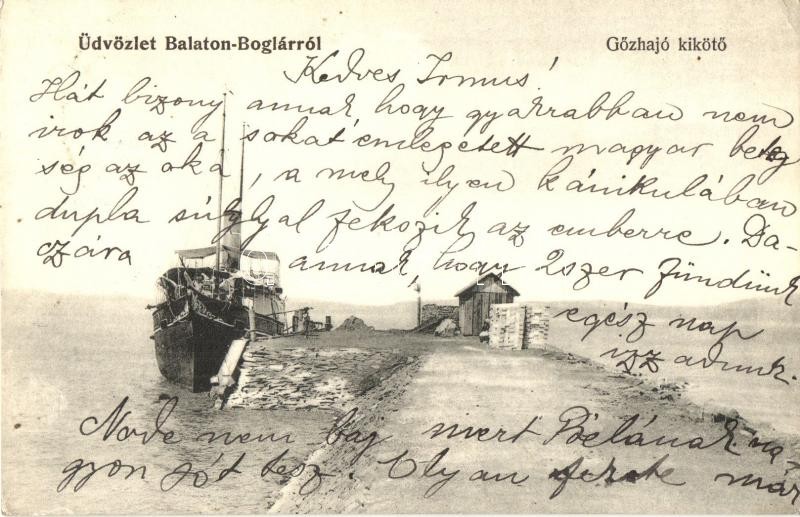 Üdvözlet Balaton-Boglárról
Gőzhajó kikötő
Kedves Irmus!
Hát bizony annak hogy gyakrabban nem
irok az a sokat emlegetett magyar beteg
ség az oka, a mely ilyen kánikulában
dupla súlylyal fekszik az emberre. Da-
czára annak, hogy 2szer fürdünk
egész nap
izzadunk.
Node nem baj mert Bélának na-
gyon jót tesz. Olyan fekete már